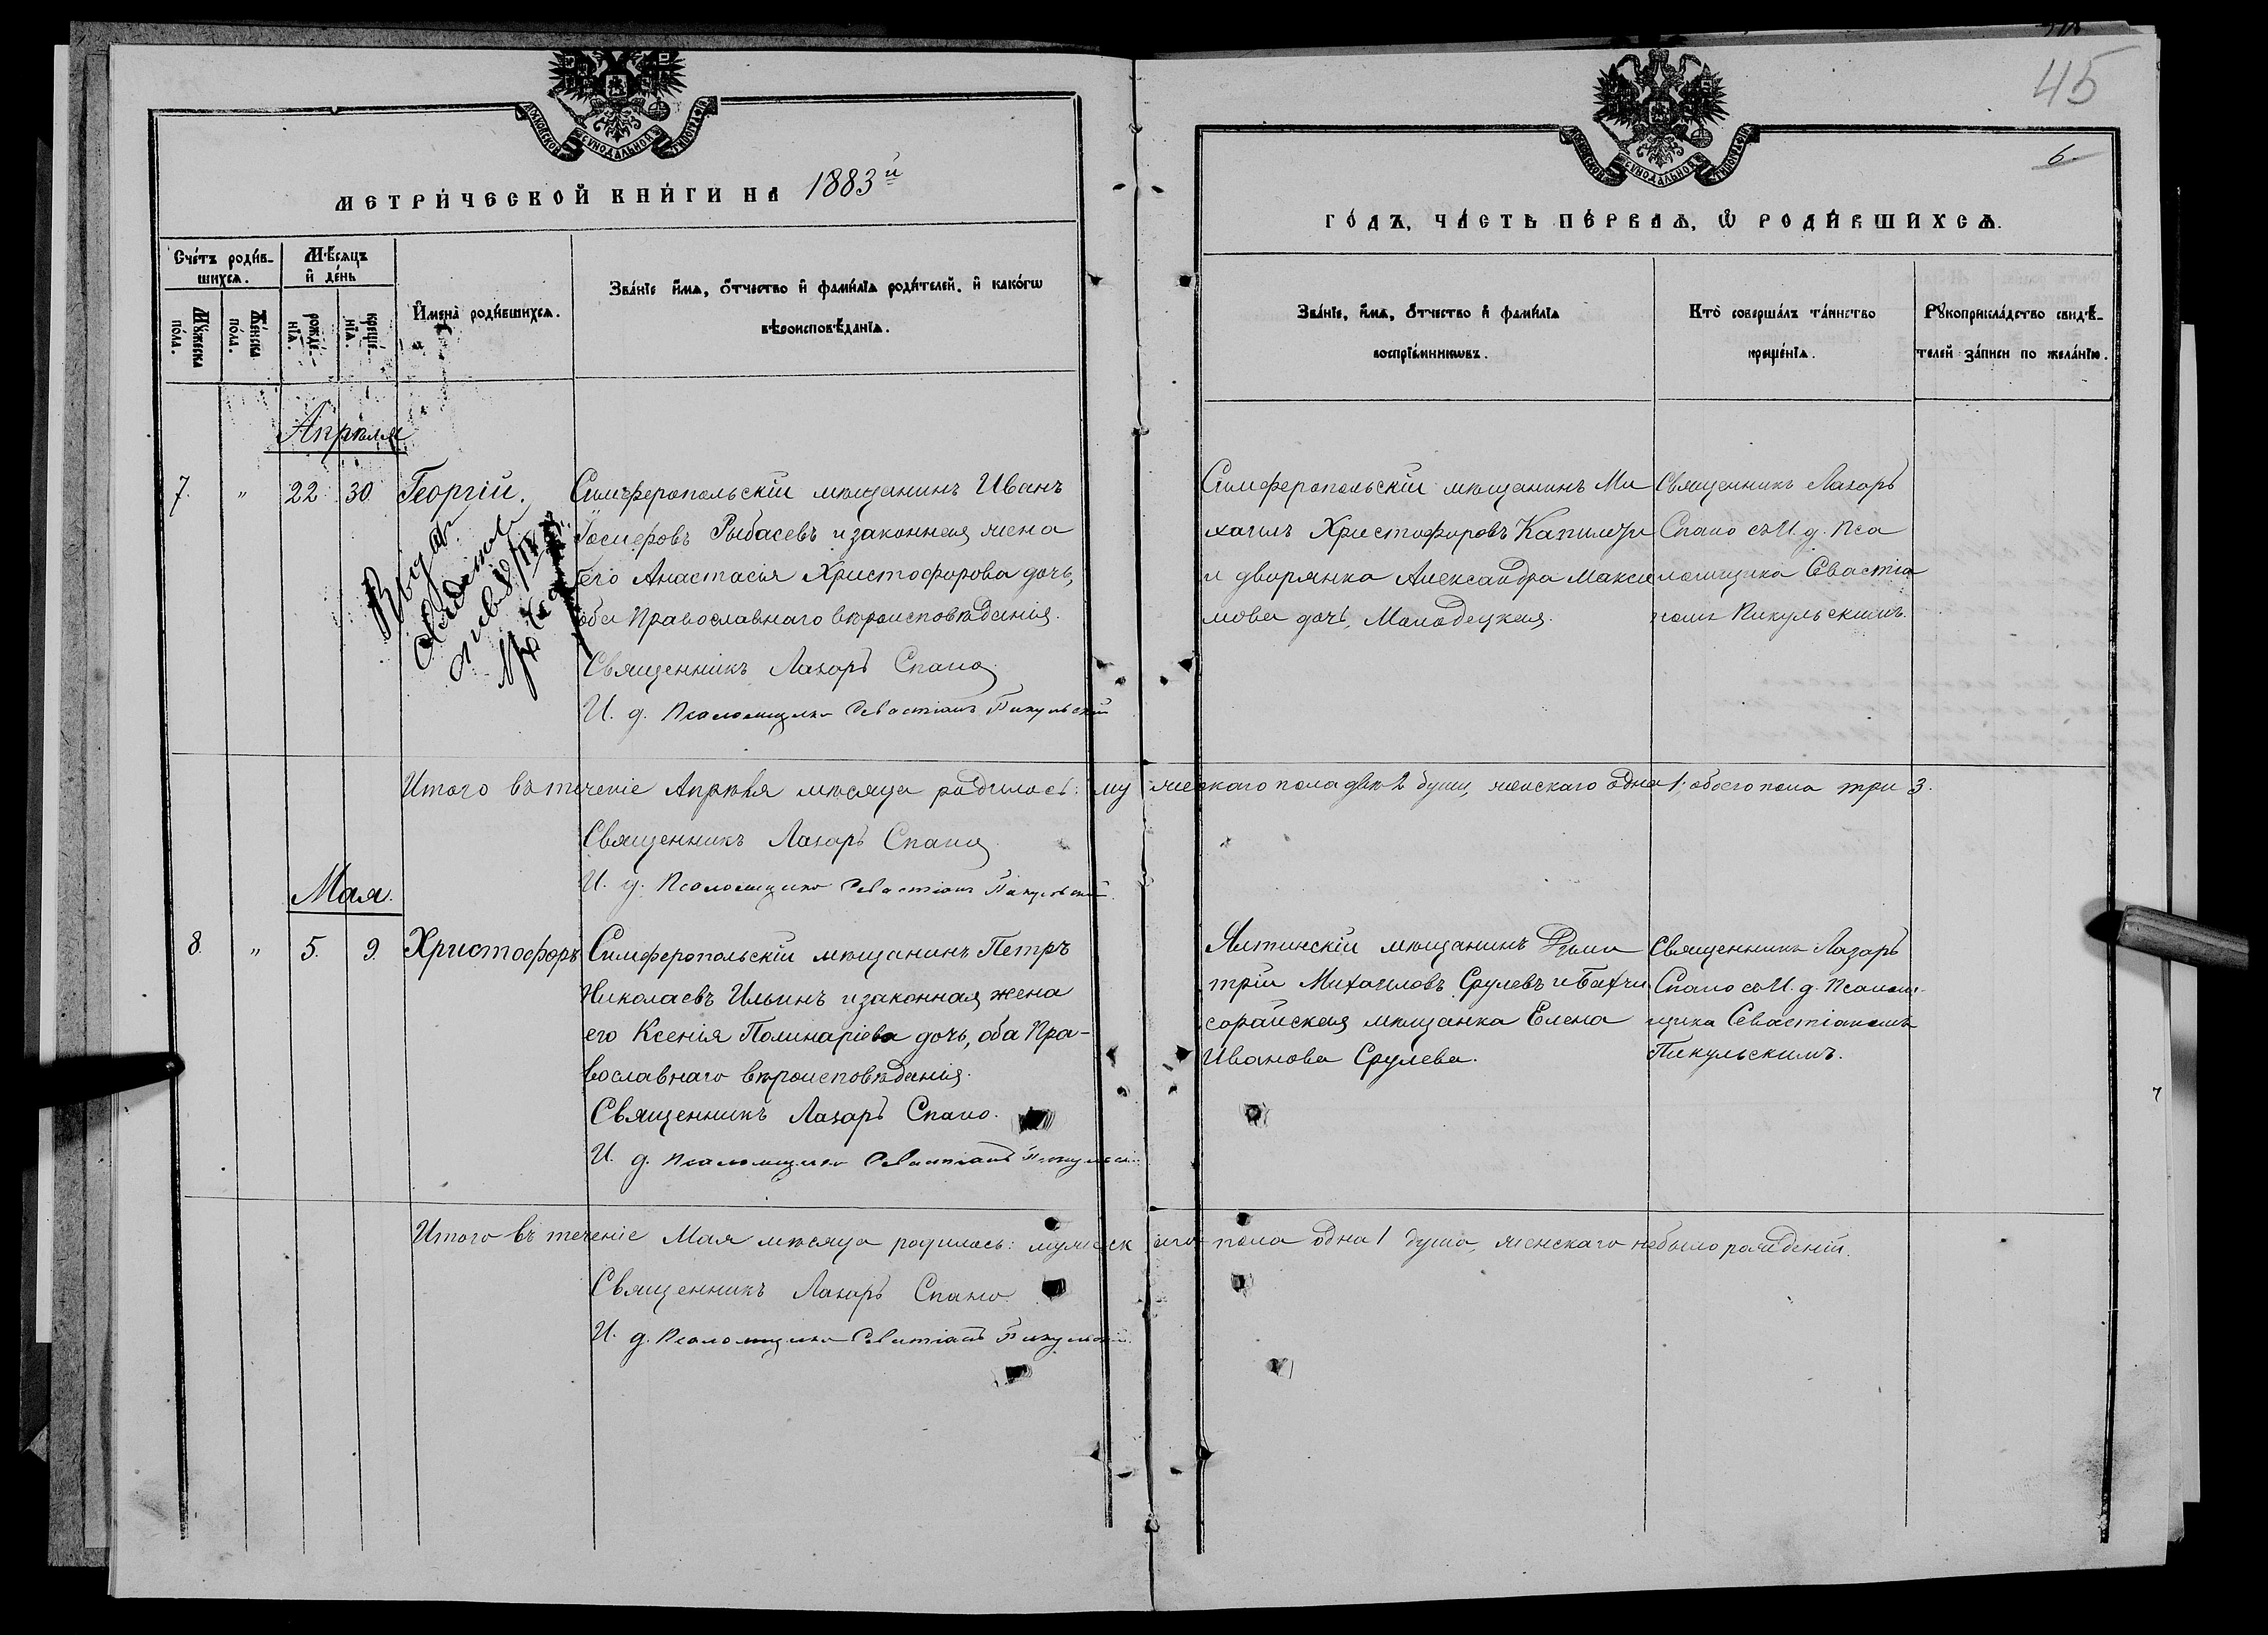 45
6.
МОСКОВСКОЙ СѴНОДАЛЬНОЙ ТИПОГРАФІИ
МОСКОВСКОЙ СѴНОДАЛЬНОЙ ТИПОГРАФІИ
МЕТРИ́ЧЕСКОЙ КНИ́ГИ НА 1883й
ГО́ДЪ, ЧА́СТЬ ПЕ́РВАѦ, Ѡ РОДИ́ВШИХСѦ.
Сче́тъ роди́в-
шихсѧ.
Мꙋ́жеска
по́ла.
Же́нска
по́ла.
Мѣ́сѧцъ
и҆ де́нь
рожде́-
нїѧ.
креще́-
нїѧ.
И҆мена̀ роди́вшихсѧ.
Зва́нїе и҆́мѧ, ѻ҆́тчество и҆ фами́лїѧ роди́телей, и҆ како́гѡ
вѣроисповѣ́данїѧ.
Зва́нїе, и҆́мѧ, ѻ҆́тчество и҆ фами́лїѧ
воспрїе́мникѡвъ.
Кто̀ соверша́лъ та́инство
креще́нїѧ.
Рꙋкоприкла́дство свидѣ́-
телей за́писи по жела́нїю.
Апрѣля
7. " 22 30 Георгій.
Симферопольскій мѣщанинъ Иванъ
Іосифовъ Рыбасевъ и законная жена
его Анастасія Христофорова дочь,
оба Православнаго вѣроисповѣданія.
Священникъ Лазарь Спано
И. д. Псаломщика Севастіанъ Пикульскій
Выдано
Симферопольскій мѣщанинъ Ми
хаилъ Христофоровъ Капилези
и дворянка Александра Макси
мова дочь, Молодецкая.
Священникъ Лазарь
Спано съ И. д. Пса
ломщика Севастіа
номъ Пикульскимъ.
Итого въ теченіе Апрѣля мѣсяца родилось: мужескаго пола двѣ 2 души, женскаго одна 1; обоего пола три 3.
Священникъ Лазарь Спано
И. д. Псаломщика Севастіанъ Пикульскій.
Мая.
8. " 5. 9. Христофоръ
Симферопольскій мѣщанинъ Петръ
Николаевъ Ильинъ и законная жена
его Ксенія Полинаріева дочь, оба Пра-
вославнаго вѣроисповѣданія.
Священникъ Лазарь Спано.
И. д. Псаломщика Севастіанъ Пикульскій
Ялтинскій мѣщанинъ Дими
трій Михаиловъ Срулевъ и Бахчи
сарайская мѣщанка Елена
Иванова Срулева.
Священникъ Лазарь
Спано съ И. д. Псалом-
щика Севастіаномъ
Пикульскимъ.
Итого въ теченіе Мая мѣсяца родилось: мужескаго пола одна 1 душа, женскаго небыло рожденій.
Священникъ Лазарь Спано
И. д. Псаломщика Севастіанъ Пикульскій.